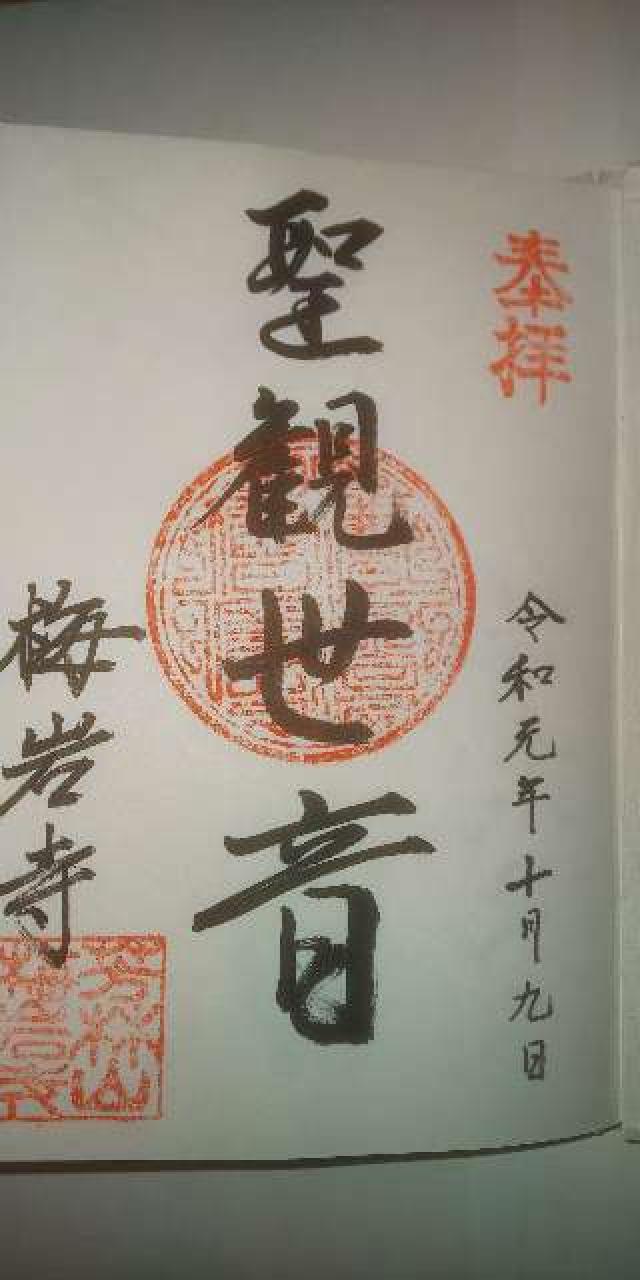 奉拝
令和元年十月九日
聖観世音
梅岩寺
芳林山